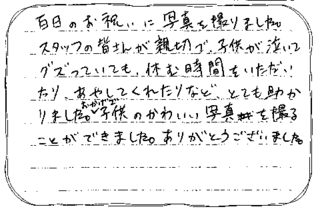 百日のお祝いに写真を撮りました。
スタッフの皆さんが親切で、子供が泣いて
グズっていても、休む時間をいただい
たり、あやしてくれたりなど、とても助か
りました。おかげで子供のかわいい写真を撮る
ことができました。ありがとうございました。